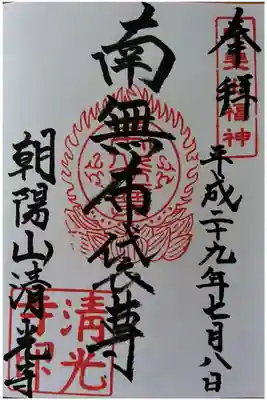 奉拝
平成二十九年七月八日
南無布袋尊
朝陽山清光寺
清光
寺印
福神